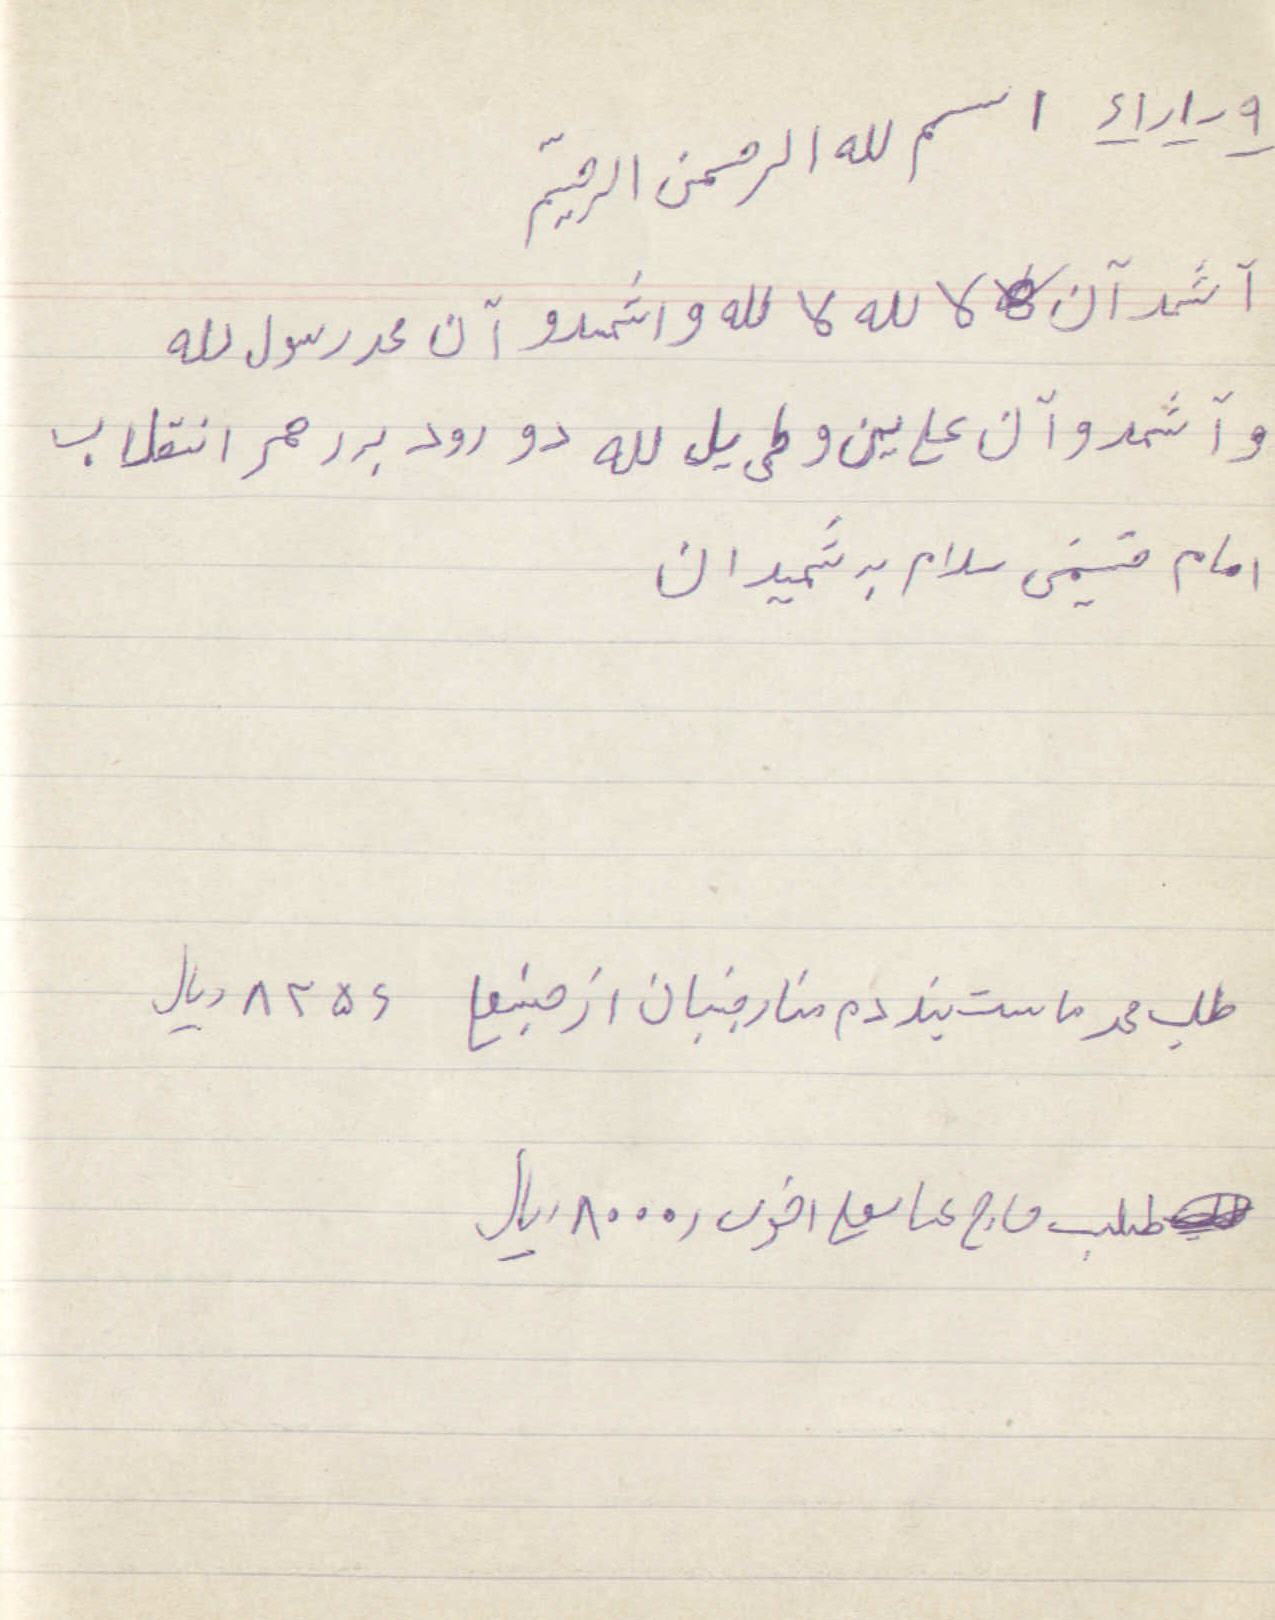 اسم لله الرحمن الرحیم
آشد آن لا لله لا لله و اشهدو آن محمد رسول لله
و آشهدو آن علی ین و لی یل لله دو رود بر رهبر انقلاب
امام خمینی سلام به شهیدان
طلب محمد ماست بند دم منار جنبان از حینعلی ۸۲۵۶ ریال
طلب حاج عباسعلی ۸۰۰۰ ریال